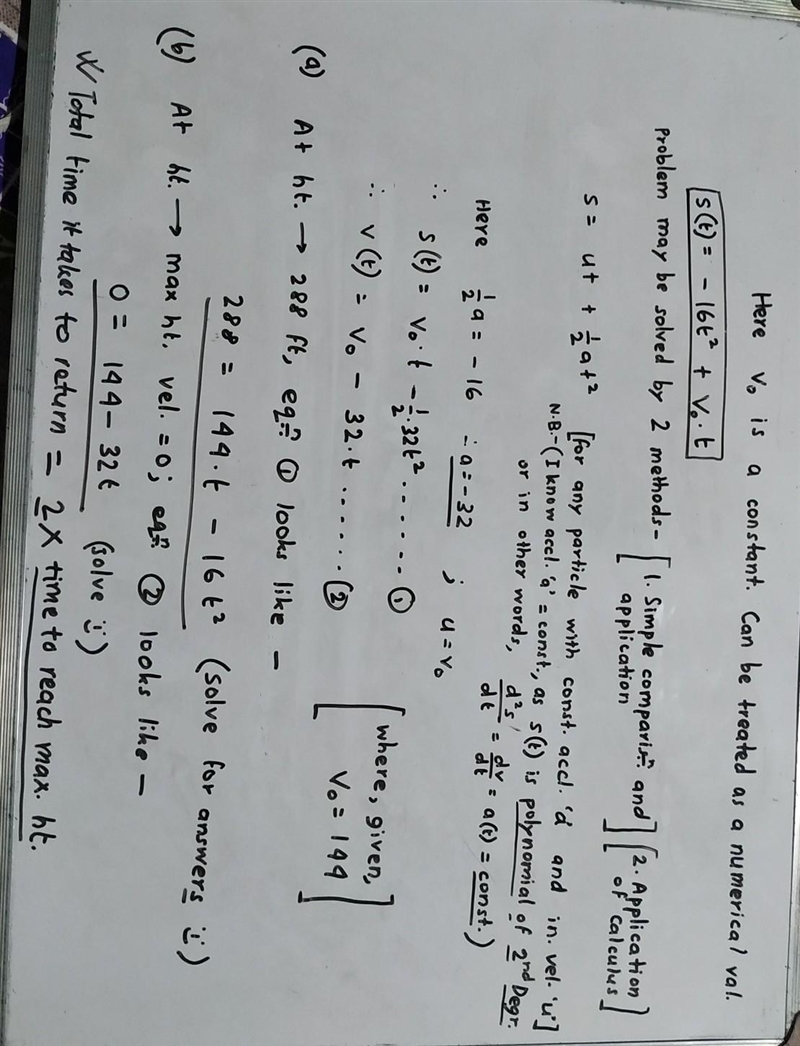 Here v₀ is a constant. Can be treated as a numerical val.
s(t) = - 16t² + v₀.t
Problem may be solved by 2 methods- [1. Simple comparisn and application] [2. Application of calculus]
s = ut + ½at² [for any particle with const. accl. 'a' and in. vel. 'u']
N.B.- (I know accl. 'a' = const., as s(t) is polynomial of 2nd Degr.
or in other words, d²s/dt = dv/dt = a(t) = const.)
Here ½a = -16 ∴ a = -32 ; u = v₀
∴ s(t) = v₀.t - ½.32t² ...... ①
∴ v(t) = v₀ - 32.t ...... ② [where, given, v₀ = 144]
(a) At ht. → 288 ft, eqn. ① looks like -
288 = 144.t - 16t² (solve for answers :))
(b) At ht. → max ht., vel. = 0; eqn. ② looks like -
0 = 144 - 32t (solve :))
Total time it takes to return = 2 X time to reach max. ht.